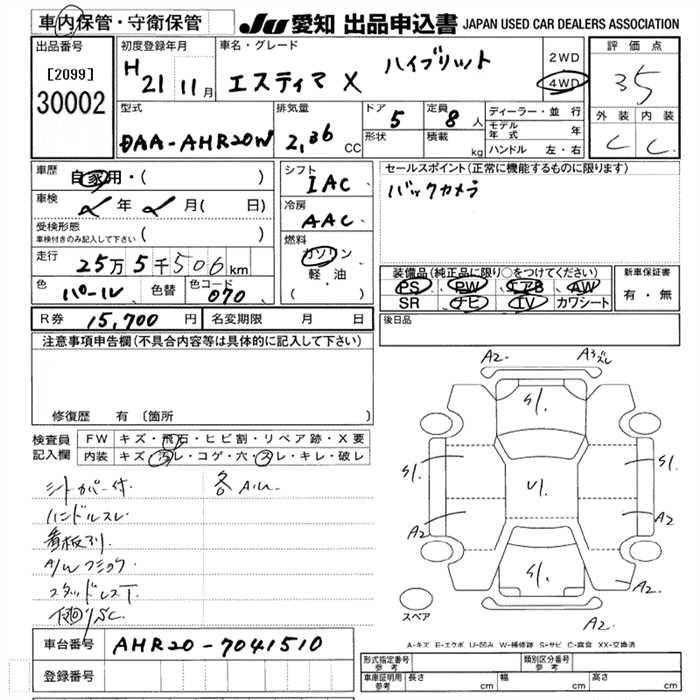 車内保管・守衛保管
JU 愛知 出品申込書 JAPAN USED CAR DEALERS ASSOCIATION
出品番号
[2099]
30002
初度登録年月
H 21 11月
車名・グレード
エスティマ X ハイブリット
2WD
4WD
評価点
3.5
外装 内装
C C
型式
DAA-AHR20W
排気量
2,36 CC
ドア 5
形状
定員 8人
積載 kg
ディーラー・並行
モデル年式 年
ハンドル 左・右
車歴
自家用・( )
車検
年 月( 日)
受検形態
車検付きのみ記入して下さい ( )
走行
25万5千506km
色 パール 色替 色コード 070
シフト
IAC
冷房
AAC
燃料
ガソリン
軽・油
( )
セールスポイント(正常に機能するものに限ります)
バックカメラ
装備品(純正品に限り○をつけてください)
PS PW エアB AW
SR ナビ TV カワシート
新車保証書
有・無
R券 15,700円 名変期限 月 日
後日品
注意事項申告欄(不具合内容等は具体的に記入して下さい)
修復歴 有〔箇所
検査員記入欄
FW キズ・飛石・ヒビ割・リペア跡・X要
内装 キズ・汚レ・コゲ・穴・スレ・キレ・破レ
シートカバー付 各A,U
ハンドルスレ
看板アリ
A/Wフミラワ
スタッドレスT
下廻りSC
A2 A3ズレ
S1
S1 U1 S1
A2 A2
S1
A2
A2
スペア
A-キズ E-エクボ U-凹み W-補修跡 S-サビ C-腐食 XX-交換済
車台番号 AHR20-7041510
登録番号
形式指定番号 参考 類別区分番号 参考
車庫証明用 参考 長さ cm 幅 cm 高さ cm